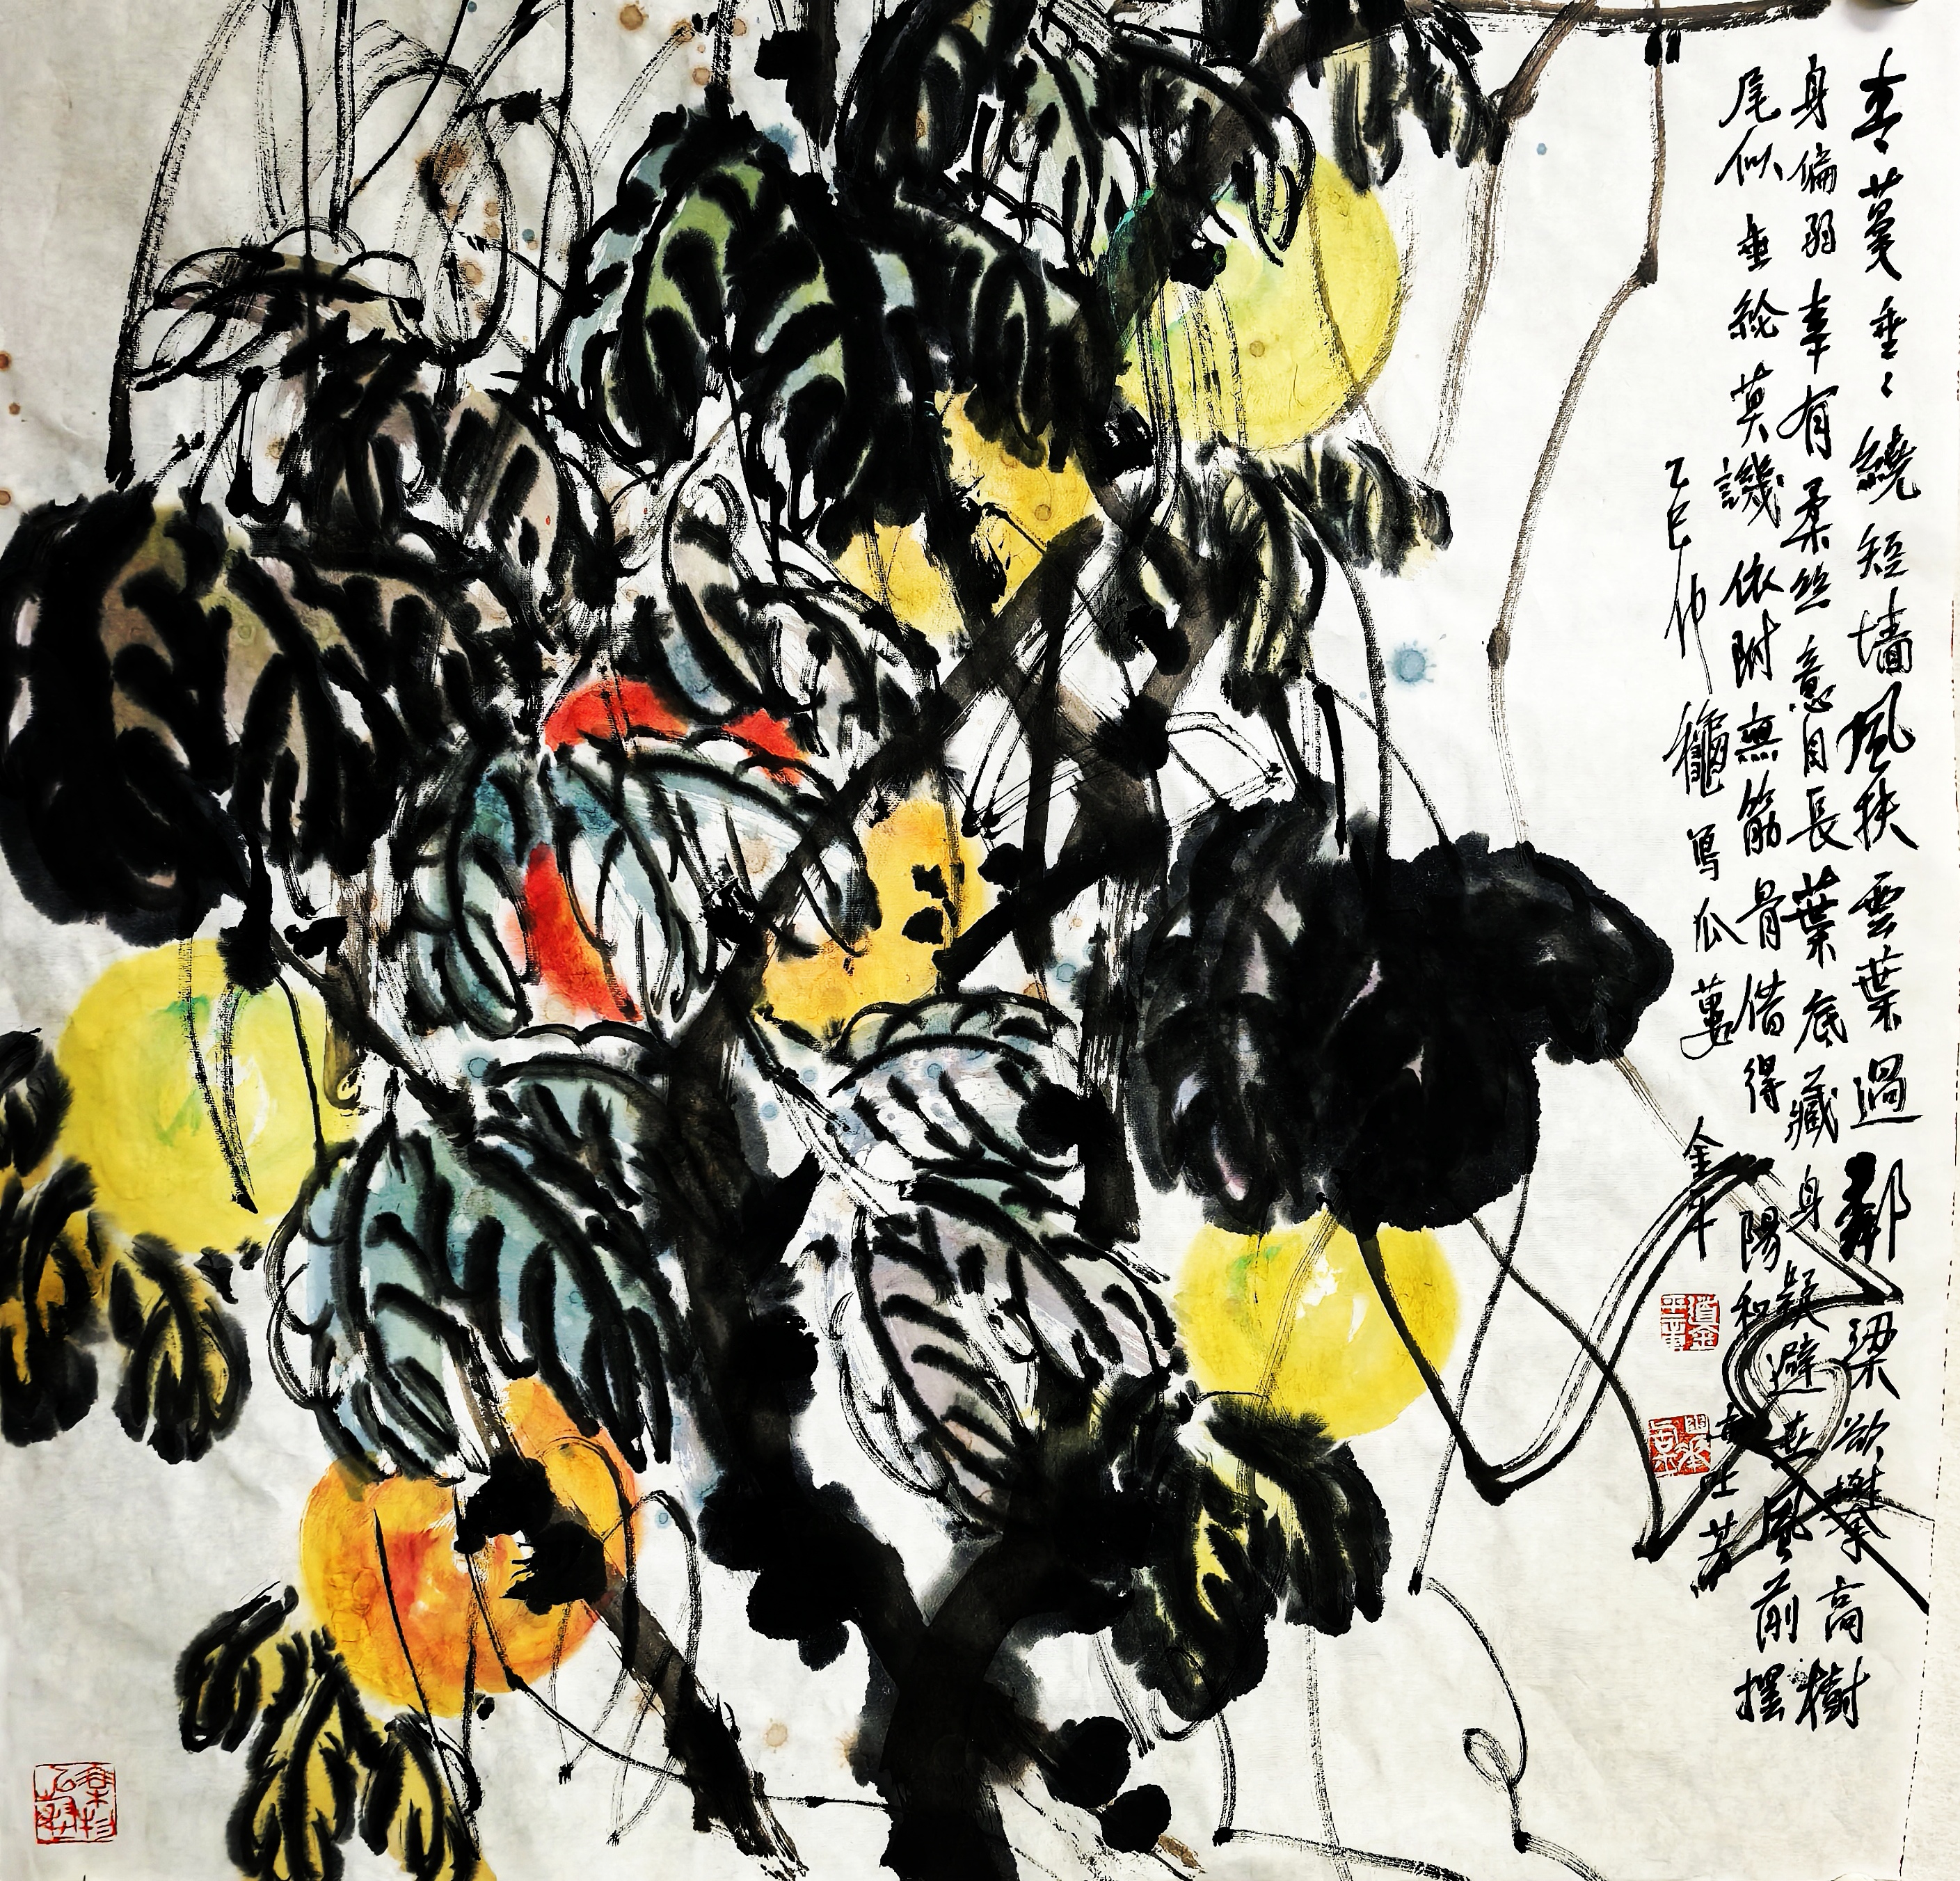 青蔓垂〻繞短墻風扶雲葉過鄰梁欲攀高樹
身偏弱幸有柔丝意自長葉底藏身疑避風前擺
尾似垂綸莫譏依附無筋骨借得陽和吐芳
乙巳仲龝寫瓜蔞金平